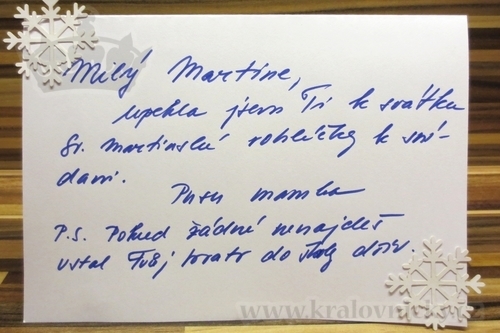 Milý Martine,
upekla jsem Ti k svátku
Sv. Martinské rohlíčky k sní-
dani.
Pusu mamka
P.S. Pokud žádné nenajdeš
vstal Tvůj bratr do školy dřív.
www.kralovnice